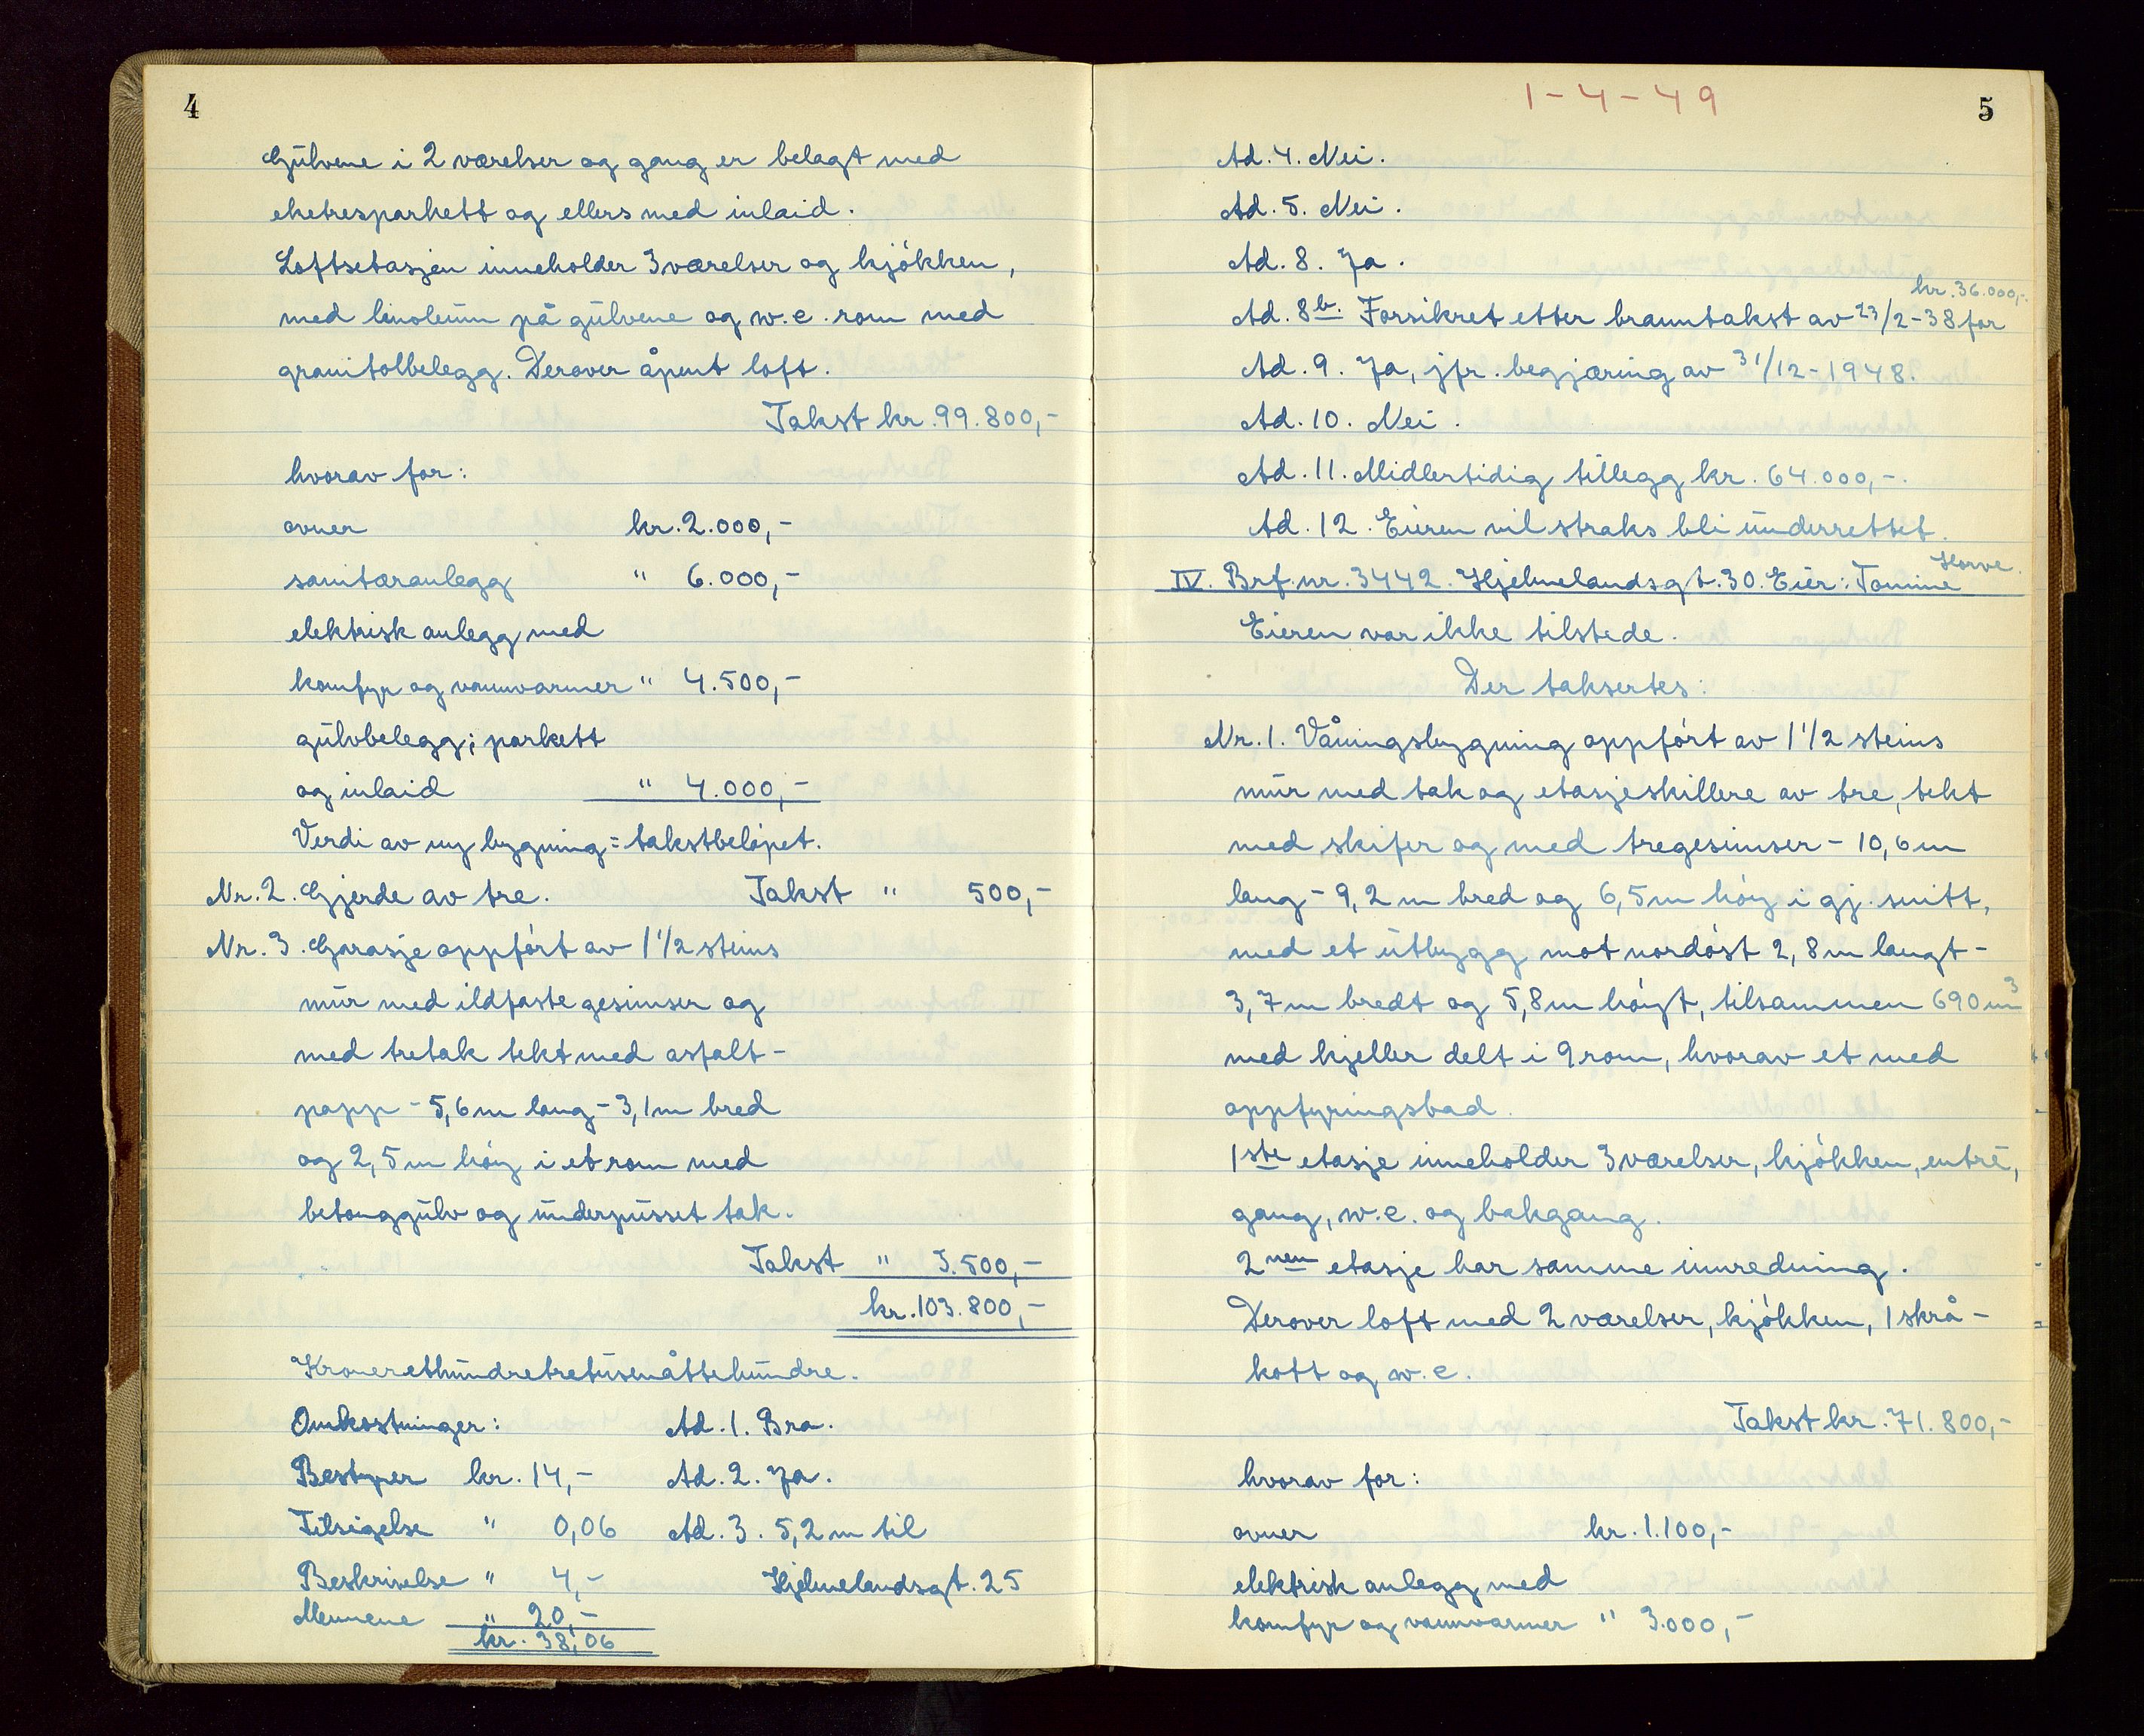 4
Gülvene i 2 værelser og gang er belagt med
eketresparkett og ellers med inlaid.
Loftsetasjen inneholder 3 værelser og kjøkken,
med linoleum på gülvene og w.c. rom med
granitolbelegg. Derover åpent loft.
Takst kr. 99.800,-
hvorav for:
ovner kr. 2.000,-
sanitæranlegg " 6.000,-
elektrisk anlegg med
komfyr og vannvarmer " 4.500,-
gülvbelegg; parkett
og inlaid " 4.000,-
Verdi av ny bygning = takstbeløpet.
Nr. 2. Gjerde av tre. Takst " 500,-
Nr. 3. Garasje oppført av 1 1/2 steins
mür med ildfaste gesimser og
med tretak tekt med asfalt-
papp - 5,6 m lang - 3,1 m bred
og 2,5 m høy i et rom med
betonggülv og ünderpüsset tak.
Takst " 3.500,-
kr. 103.800,-
Kroneretthündretretüsenåttehündre.
Omkostninger: Ad. 1. Bra.
Bestyrer kr. 14,- Ad. 2. Ja.
Tilsigelse " 0,06 Ad. 3. 5,2 m til
Beskrivelse " 4,- Hjelmelandsgt. 25
Mennene " 20,-
kr. 38,06
1-4-49
5
Ad. 4. Nei.
Ad. 5. Nei.
Ad. 8. Ja.
kr. 36.000,-
Ad. 8b. Forsikret etter branntakst av 23/2-38 for
Ad. 9. Ja, jfr. begjæring av 31/12-1948.
Ad. 10. Nei.
Ad. 11. Midlertidig tillegg kr. 64.000,-.
Ad. 12. Eieren vil straks bli ünderrettet.
IV. Brf. nr. 3442. Hjelmelandsgt. 30. Eier: Tomine Horve.
Eieren var ikke tilstede.
Der taksertes:
Nr. 1. Våningsbygning oppført av 1 1/2 steins
mür med tak og etasjeskillere av tre, tekt
med skifer og med tregesimser - 10,6 m
lang - 9,2 m bred og 6,5 m høy i gj. snitt,
med et ütbygg mot nordøst 2,8 m langt -
3,7 m bredt og 5,8 m høyt, tilsammen 690 m3
med kjeller delt i 9 rom, hvorav et med
oppfyringsbad.
1ste etasje inneholder 3 værelser, kjøkken, entré,
gang, w.c. og bakgang.
2nen etasje har samme innredning.
Derover loft med 2 værelser, kjøkken, 1 skrå-
kott og w.c.
Takst kr. 71.800,-
hvorav for:
ovner kr. 1.100,-
elektrisk anlegg med
komfyr og vannvarmer " 3.000,-